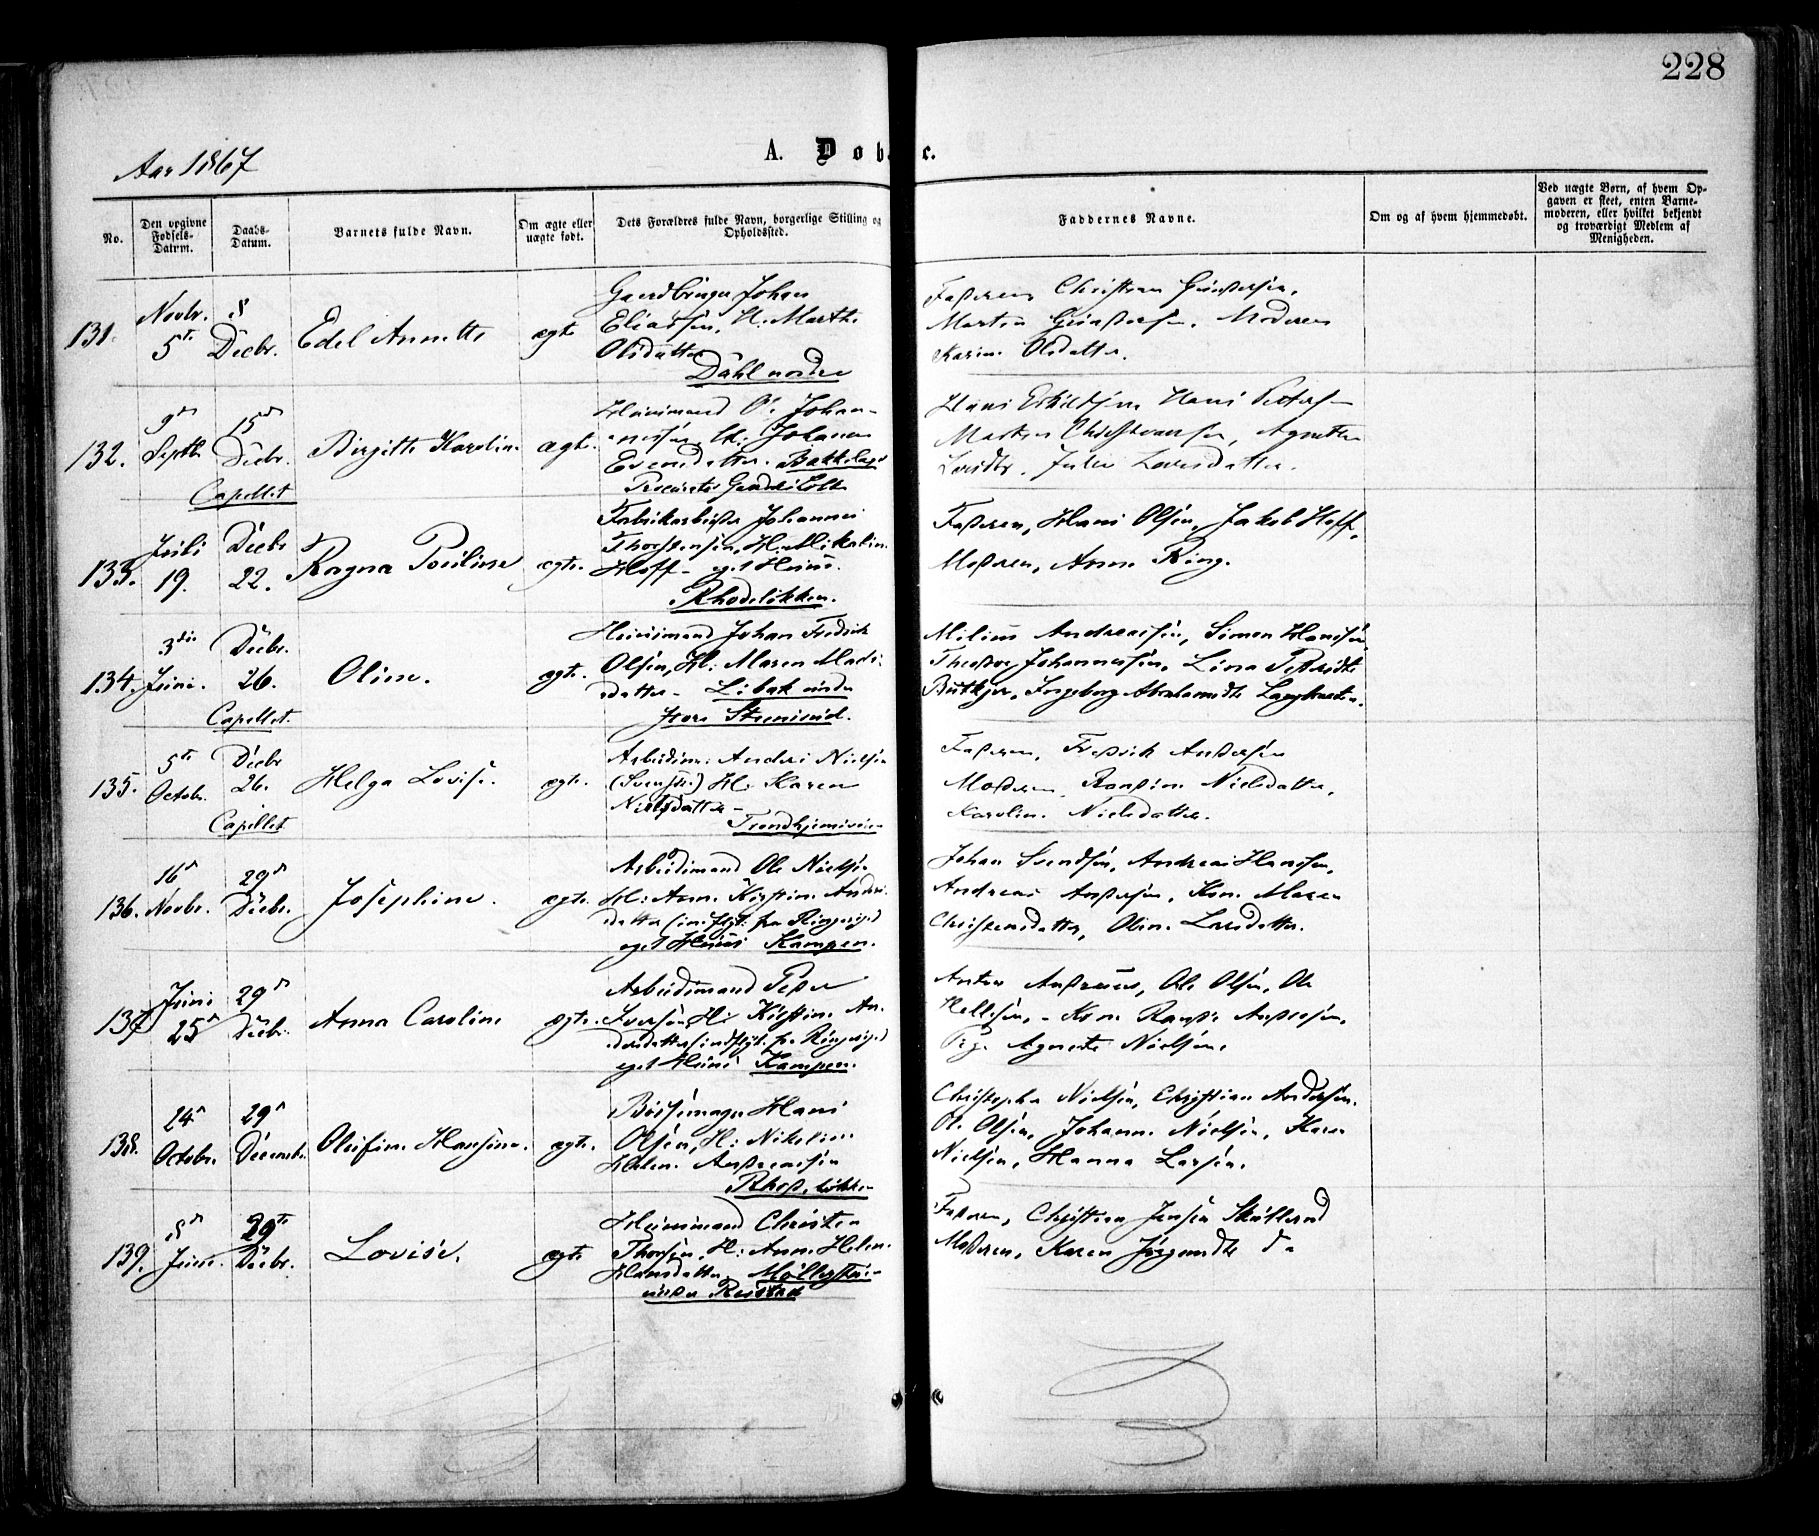 228
Aar 1867
A. Døbte.
No.
Den opgivne Fødsels-Datum.
Daabs-Datum.
Barnets fulde Navn.
Om ægte eller uægte født.
Dets Forældres fulde Navn, borgerlige Stilling og Opholdssted.
Faddernes Navne.
Om og af hvem hjemmedøbt.
Ved uægte Børn, af hvem Opgaven er skeet, enten Barnemoderen, eller hvilket bekjendt og troværdigt Medlem af Menigheden.
131.
Novbr. 5te
8 Decbr.
Edel Annette
ægte
Gaardbruger Johan
Eliassen, H: Marthe
Olsdatter
Dahl nordre
Faderen, Christian
Moderen
Karine Olsdatter.
132.
9de Septbr.
15de Decbr.
Capellet
Birgitte Karoline
ægte.
Huusmand O. Johan-
nessen, H: Johanne
Evensdatter. Bakkehage
Hans Pettersen
Agnethe
Larsdtr, Julie Larsdatter.
133.
Juli 19.
Decbr 22.
Ragna Pouline
ægte.
Fabrikarbeider Johannes
Thorstensen, H: Mikaline
Hoff - eget Huus.
Rhodeløkken.
Faderen, Hans Olsen, Jakob Hoff,
Moderen, Anne Ring.
134.
3die Juni.
Decbr. 26.
Capellet.
Oline.
ægte.
Huusmand Johan Fredrik
Olsen, H: Maren Mads-
datter - Libak under
Milius Andreassen, Simon Hansen
Theodor Johannessen, Lina Pedersdtr
Ingeborg Abrahamsdtr
135.
5te Octobr.
Decbr 26.
Capellet
Helga Lovise.
ægte.
Arbeidsm: Anders Nielsen
(Svensk) H: Karen
Nielsdatter -
Trondhjemsveien
Faderen, Fredrik Andersen
Moderen, Nielsdatter,
Karoline Nielsdatter.
136.
16de Novbr.
29de Decbr.
Josephine.
ægte.
Arbeidsmand Ole Nielsen
H: Anne Kirstine Anders-
datter (indflyt: fra Ringeriget)
eget Huus Kampen.
Johan Svendsen, Andreas Hansen,
Andreas Andersen, Kone Maren
Christensdatter, Oline Larsdatter.
137.
Juni 25de
29de Decbr.
Anna Caroline
ægte.
Arbeidsmand Peder
Iversen, H: Kirstine An-
dersdatter, indflyt. fra Ringeriget
eget Huus Kampen.
Anton Ole Olsen, Ole
Kone Andersen,
Pige Agnethe Nielsen.
138.
24de Octobr.
29de December
Olufine Hansine.
ægte.
Bøssemager Hans
Olsen, H: Nikoline
Helene Andreassen
Rhodeløkken
Christopher Nielsen, Christian Andersen.
O. Olsen, Johanne Nielsen, Karen
Nielsen, Hanna Larsen.
139.
8de Juni.
29de Decbr.
Lovise.
ægte
Huusmand Christen
Thorsen, H: Anne Helene
Hansdatter, Møllerstuen
under Rustad
Faderen, Christian Jensen Skullerud
Moderen, Karen Jørgensdtr do